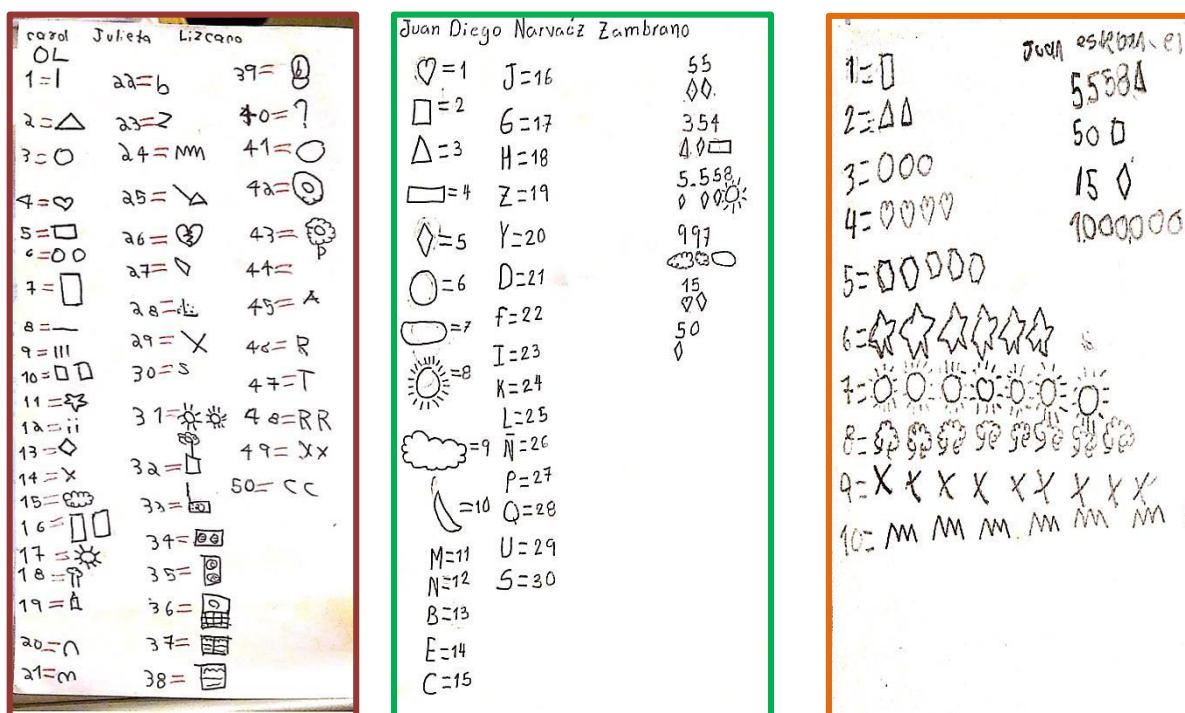 carol Julieta Lizcano
OL
1=I
2=
3=
4=
5=
6=
7=
8=
9=III
10=
11=
12=ii
13=
14=X
15=
16=
17=
18=
19=
20=
21=m
22=b
23=Z
24=
25=
26=
27=
28=
29=X
30=S
31=
32=
33=
34=
35=
36=
37=
38=
39=
40=?
41=
42=
43=
44=
45=A
46=R
47=T
48=RR
49=Xx
50=CC
Juan Diego Narvaéz Zambrano
=1
=2
=3
=4
=5
=6
=7
=8
=9
=10
M=11
N=12
B=13
E=14
C=15
J=16
G=17
H=18
Z=19
Y=20
D=21
f=22
I=23
K=24
L=25
Ñ=26
P=27
Q=28
U=29
S=30
55
354
5.558
997
15
50
Juan
1=
2=
3=
4=
5=
6=
7=
8=
9=X X X X X X X X X
10=
5558
50
15
1000,000